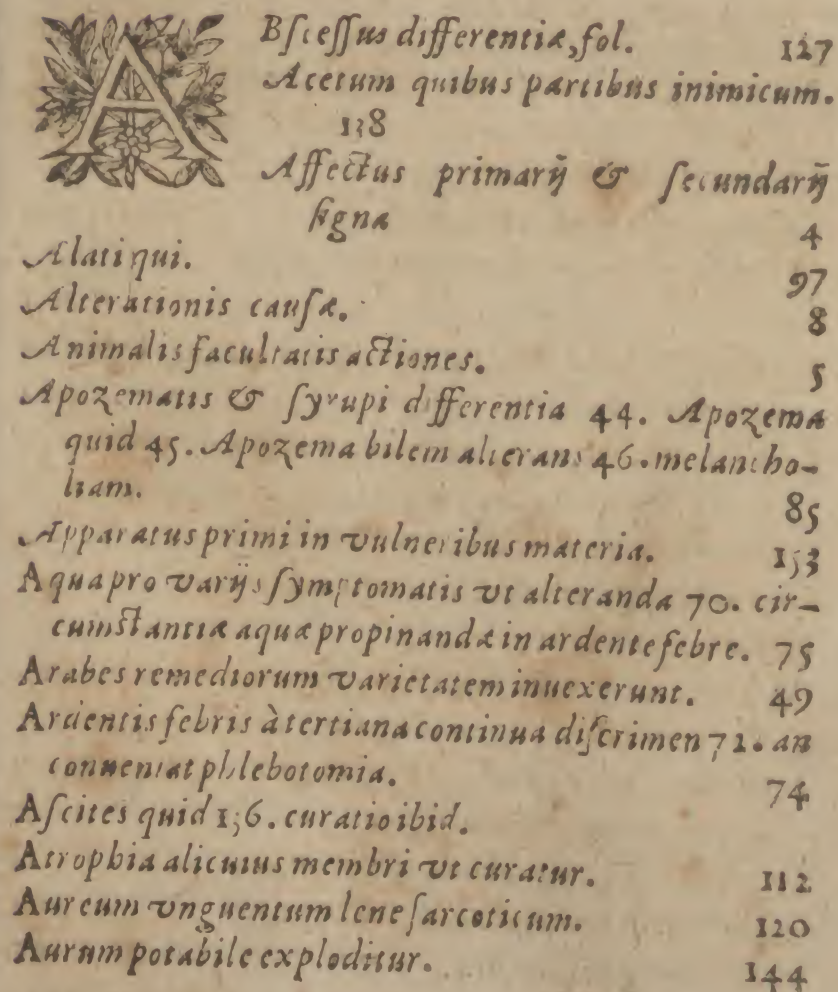 ABſceſſus differentiæ, fol. 127
Acetum quibus partibus inimicum.
138
Affectus primarij & ſecundarij
ſigna 4
Alati qui. 97
Alterationis cauſæ. 8
Animalis facultatis actiones. 5
Apozematis & ſyrupi differentia 44. Apozema
quid 45. Apozema bilem alterans 46. melancho-
liam. 85
Apparatus primi in vulneribus materia. 153
Aqua pro varijs ſymptomatis vt alteranda 70. cir-
cumſtantiæ aquæ propinandæ in ardente febre. 75
Arabes remediorum varietatem inuexerunt. 49
Ardentis febris à tertiana continua diſcrimen 72. an
conueniat phlebotomia. 74
Aſcites quid 136. curatio ibid.
Atrophia alicuius membri vt curatur. 112
Aureum vnguentum lene ſarcoticum. 120
Aurum potabile exploditur. 144